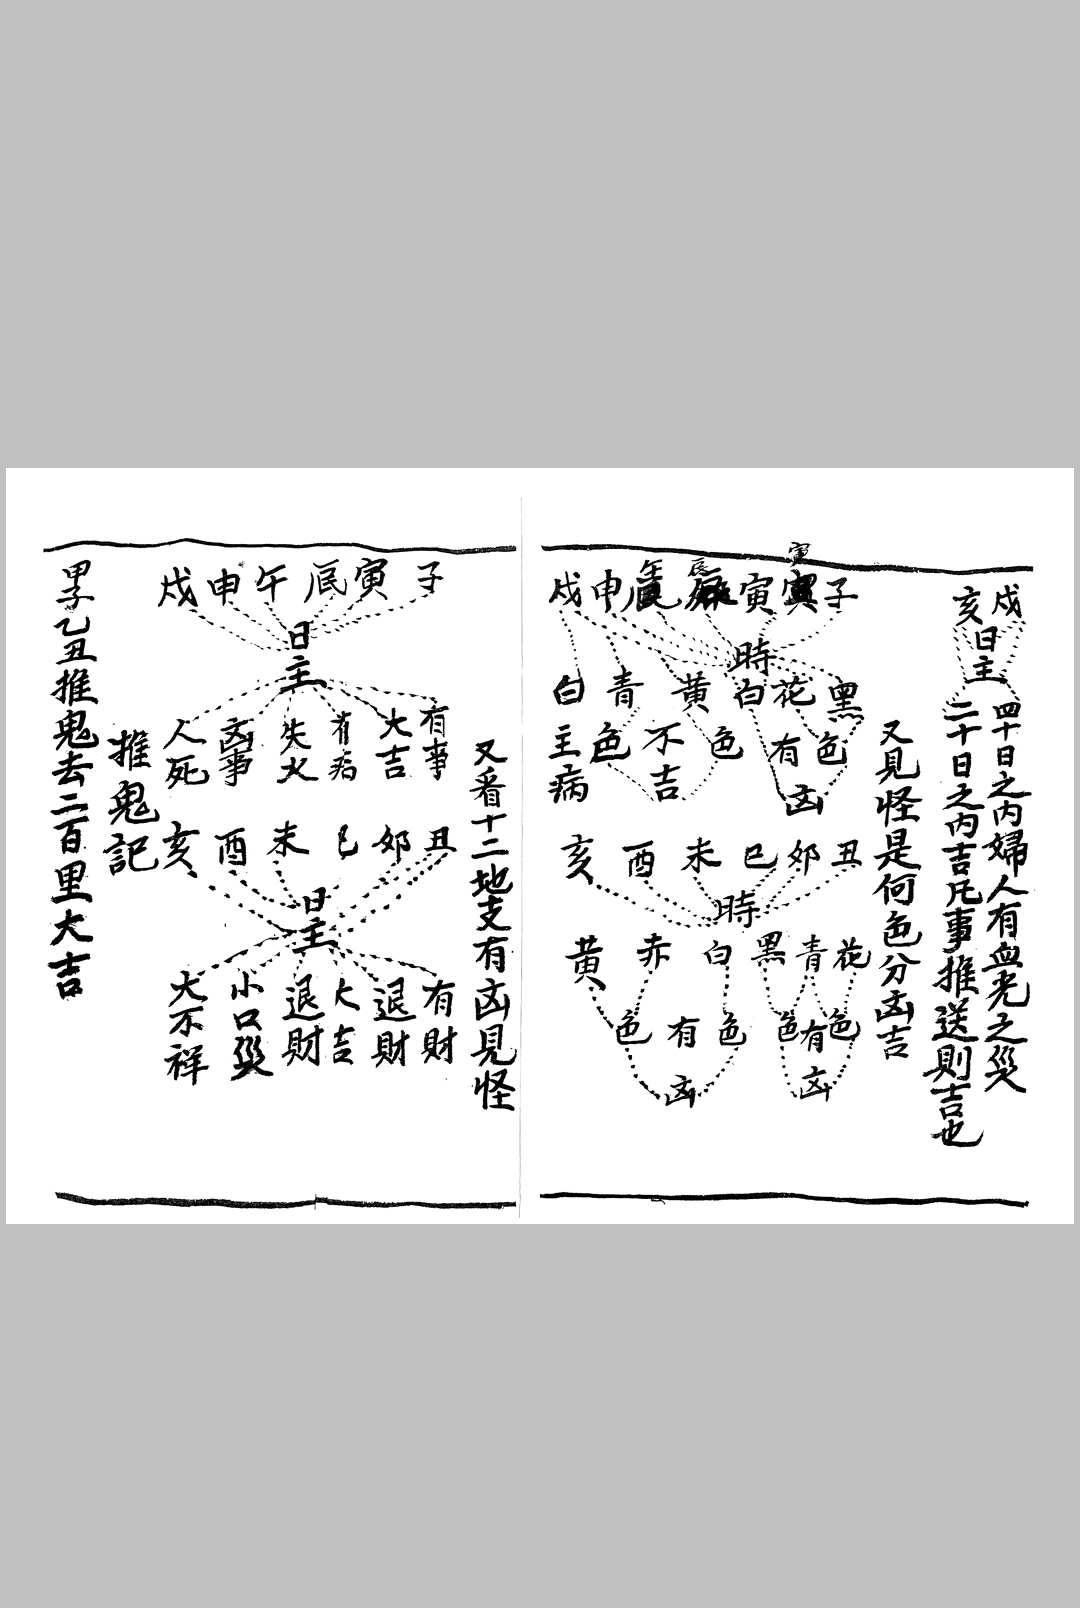 戍
亥
日主
四十日之内婦人有血光之災
二十日之内吉凡事推送則吉也
又見怪是何色分凶吉
子
寅
寅
寅
辰
午
申
戍
時
黑
花
白
黄
青
白
色
有
色
不
色
主
凶
吉
病
丑
卯
巳
未
酉
亥
時
花
青
黑
白
赤
黄
色
有
色
色
有
色
凶
凶
又看十二地支有凶見怪
子
寅
辰
午
申
戍
日主
有事
大吉
有病
失火
凶事
人死
丑
卯
巳
未
酉
亥
日主
有財
退財
大吉
退財
小口災
大不祥
推鬼記
甲子乙丑推鬼去二百里大吉